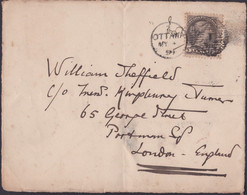 OTTAWA
William Sheffield
c/o Messrs Humphrey Turner
65 George Street
Portman Sq
London - England